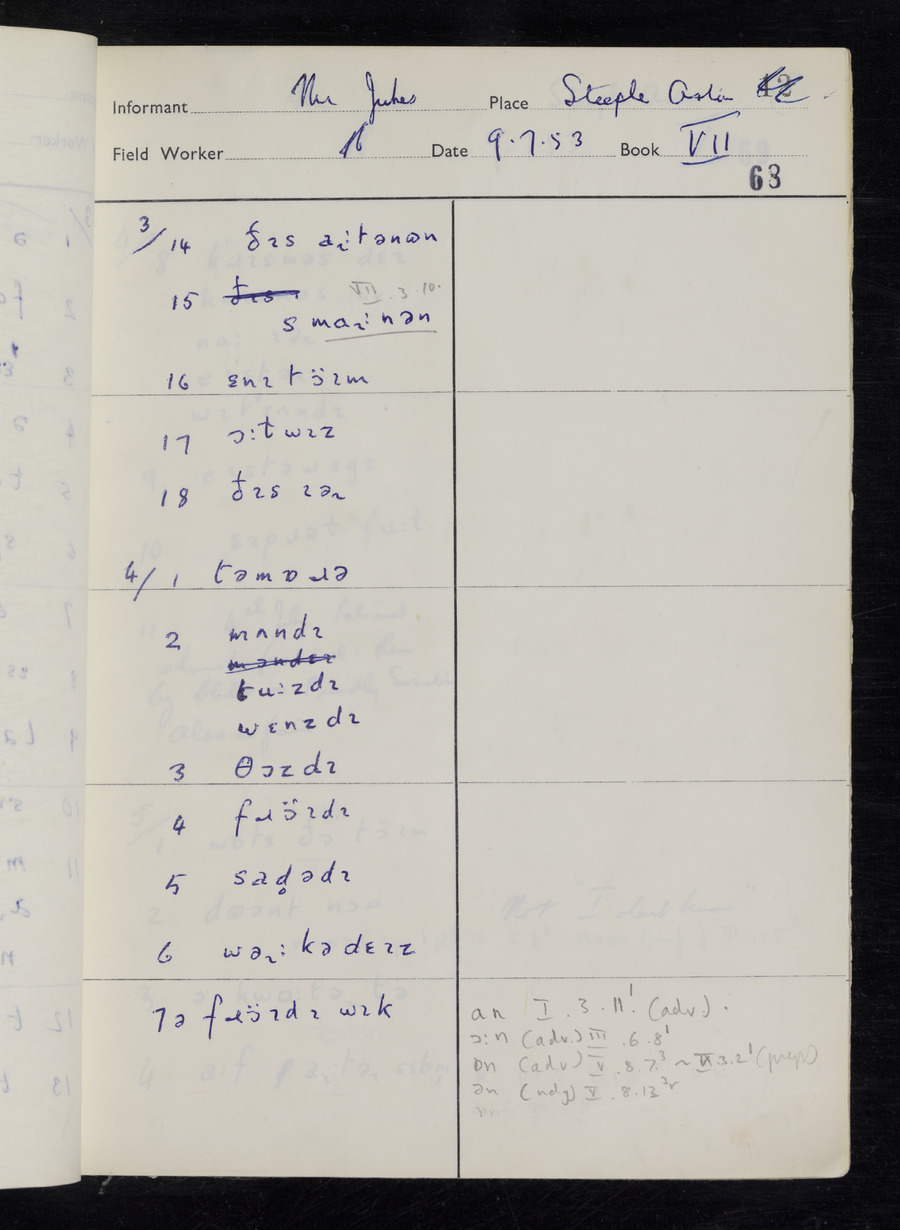 Informant Mr Jukes Place Steeple Aston
Field Worker Date 9.7.53 Book VII
63
3/14 ðɪs aɪ:tənʊn
15 VII.3.10.
s maɪ:nən
16 ɛnɪ tɔ̈ɪm
17 ɔ:twɪz
18 ðɪs ɪəɪ
4/1 təmɒɹə
2 mʌndɪ
tu:zdɪ
wɛnzdɪ
3 θɔzdɪ
4 fɹɔ̈ɪdɪ
5 sad̥ədɪ
6 wəɪ:kədɛɪz
7 ə fɹɔ̈ɪdɪ wɪk
an I.3.11¹. (adv.).
ɔ:n (adv.) III.6.8¹
ɒn (adv) V.8.7³ ~ VI.3.2¹ (prep)
ən (ndg) V.8.13³ʳ